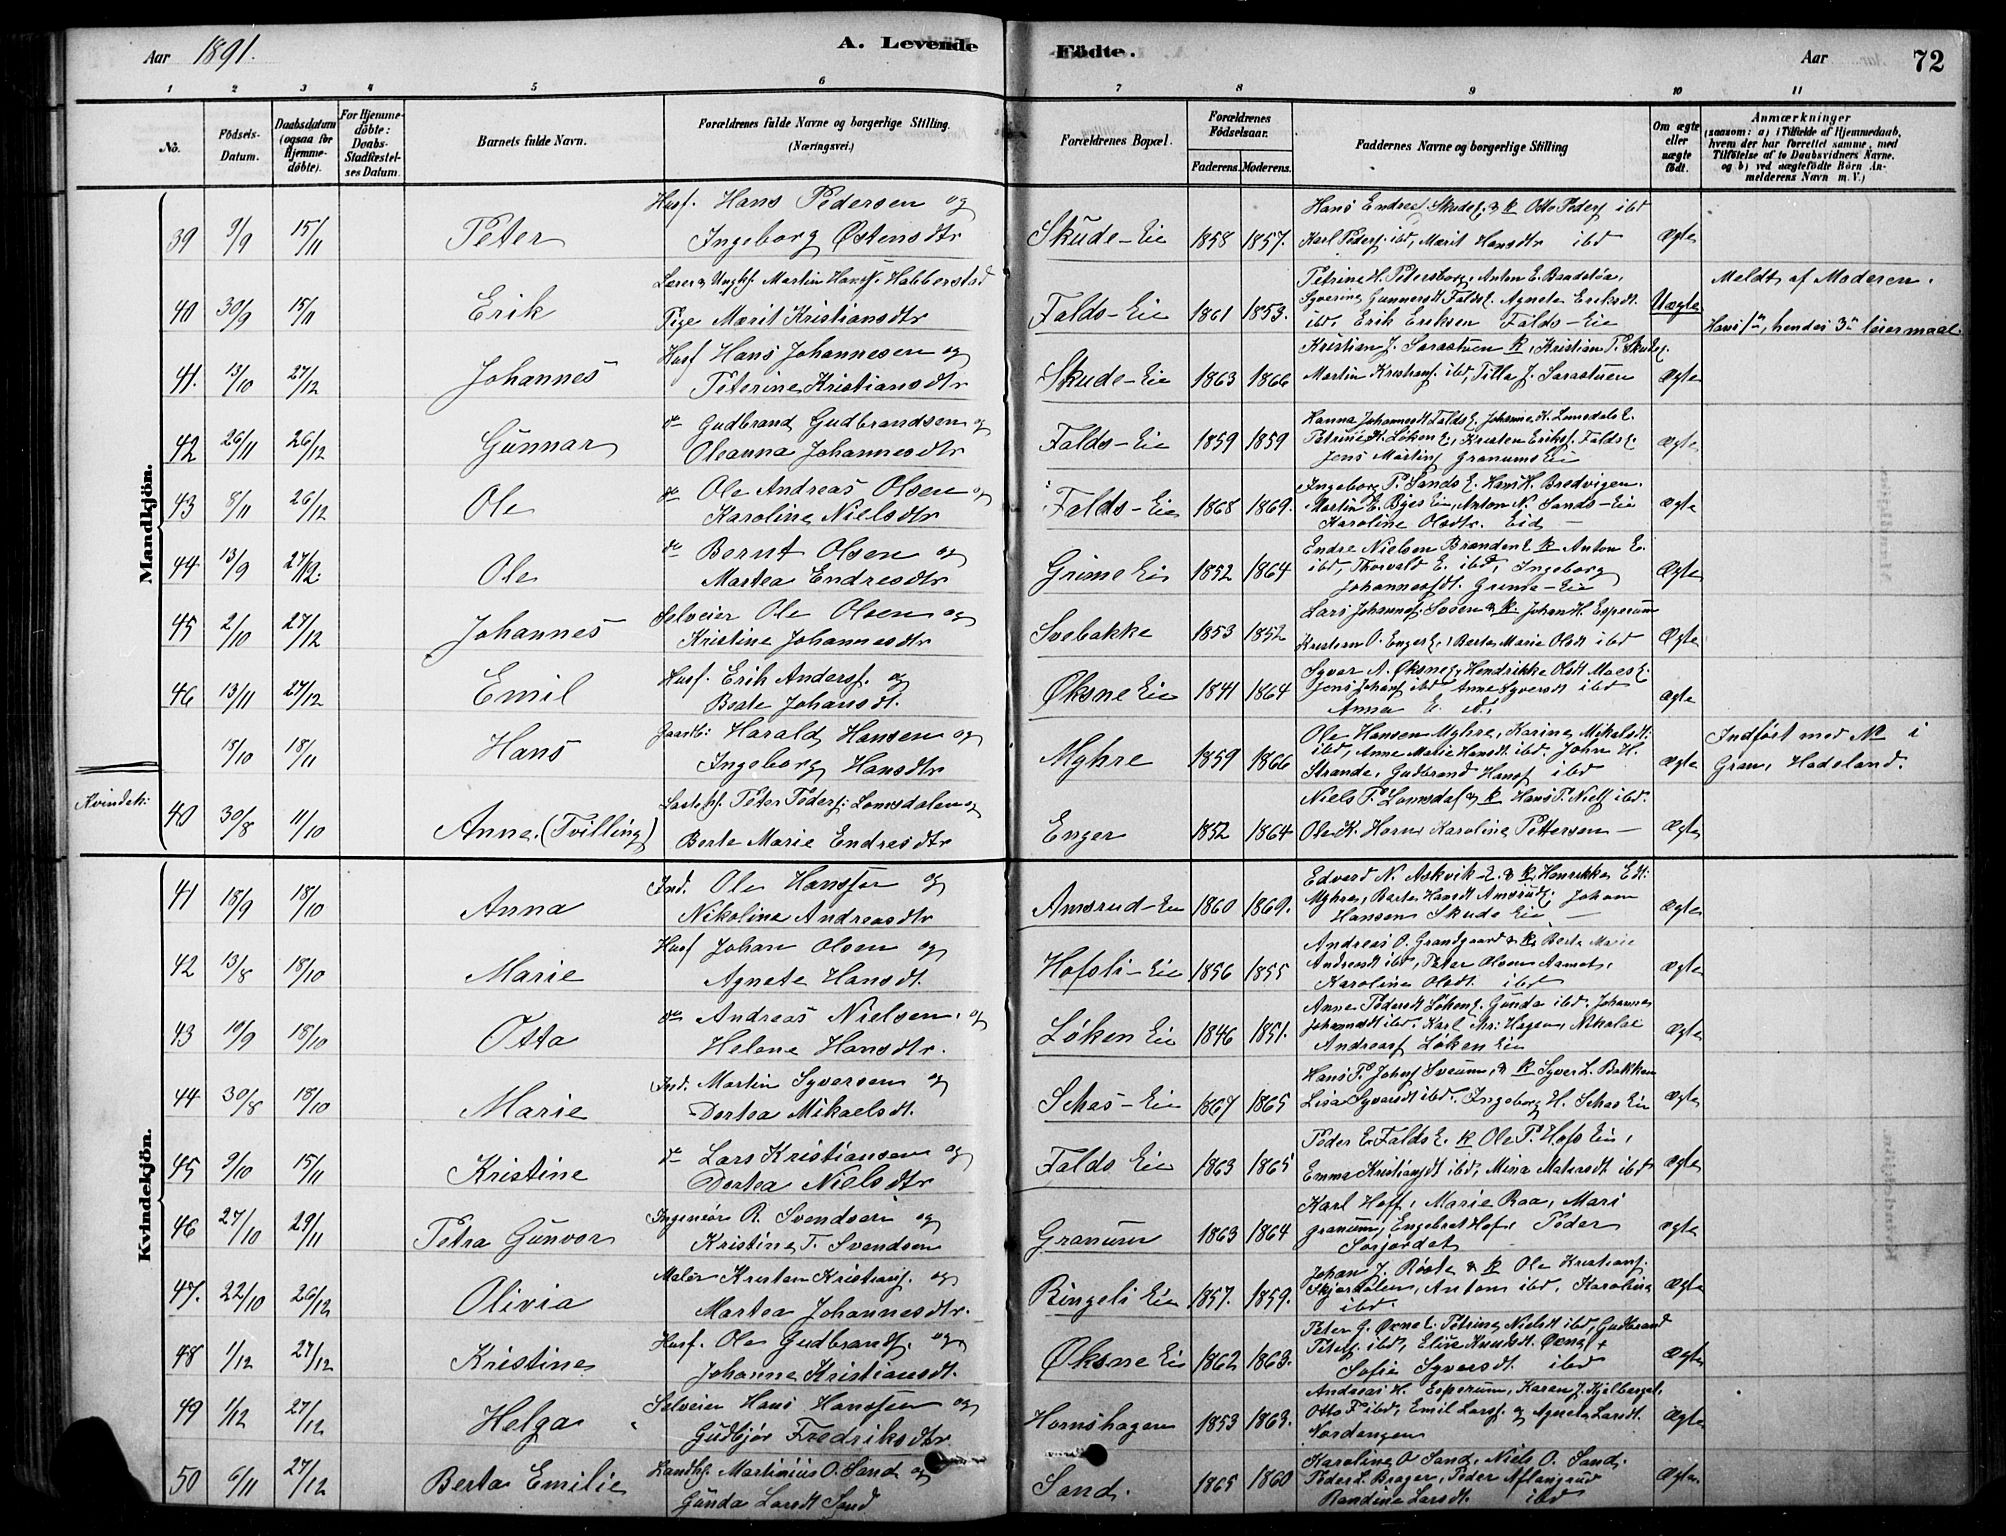 Aar 1891.
A. Levende Födte.
Aar
72
1 2 3 4 5 6 7 8 9 10 11
No.
Födsels-Datum.
Daabsdatum (ogsaa for Hjemme-döbte).
For Hjemme-döbte: Daabs-Stadfæstel-ses Datum.
Barnets fulde Navn.
Forældrenes fulde Navne og borgerlige Stilling. (Næringsvei.)
Forældrenes Bopæl.
Forældrenes Födselsaar.
Faderens. Moderens.
Faddernes Navne og borgerlige Stilling
Om ægte eller uægte født.
Anmærkninger
(saasom: a) i Tilfælde af Hjemmedaab, hvem der har forrettet samme, med Tilföielse af to Daabsvidners Navne, og b) ved uægtefödte Börn An-melderens Navn m. V.)
Mandkjön.
39 9/9 15/11 Peter Husf. Hans Pedersen og Ingeborg Østensdtr Skude-Eie 1858 1857. Hans Endres. Skudeeie & K Otto Peders ibd Karl Peders. ibd, Marit Hansdtr ibd Ægte
40 30/9 15/11 Erik Lærer & Ungkf. Martin Hans. Habberstad Pige Marit Kristiansdtr Falds-Eie 1861 1853. Petrine H. Petersborg, Anton E. Baadstøa, Syverine Gunnersdt Falds E. Agnete Eriksdt. ibd. Erik Eriksen Falds-Eie Uægte Meldt af Moderen. Hans 1ste, hendes 3de leiermaal.
41. 13/10 27/12 Johannes Husf Hans Johannesen og Peterine Kristiansdtr Skude-Eie 1863 1866 Kristian J. Sarastuen K, Kristian P. Skude. Martin Kristians. ibd, Tilla J. Sarastuen Ægte
42 26/11 26/12 Gunnar do Gudbrand Gudbrandsen og Oleanna Johannesdtr Falds-Eie 1859 1859 Hanna Johannesdt Falds E. Johanne K. Lomsdals E. Petrine K. Løken E, Kristen Eriks. Falds E. Jens Martins Granums Eie Ægte
43 8/11 26/12 Ole do Ole Andreas Olsen og Karoline Nielsdtr Falds-Eie 1868 1869. Ingeborg P. Sands E. Hans H. Bredvigen. Martin E. Byes Eie, Anton N. Sands-Eie Karoline Olsdtr. Eid — Ægte
44 13/9 27/12. Ole do Bernt Olsen og Martea Endresdtr Grime Eie 1852 1864 Endre Nielsen Branden E K Anton E. ibd, Thorvald E. ibd, Ingeborg Johannesdt. Grime-Eie Ægte
45 2/10 27/12 Johannes Selveier Ole Olsen og Kristine Johannesdtr Svebakke 1853 1852 Lars Johannes. Svéen & K Johan H. Esperum Kristian O. Enger E., Berte Marie Olsdt ibd Ægte
46 13/11 27/12 Emil Husf. Erik Anders. og Berte Johansdt. Øksne Eie 1841 1864 Syver A. Øksne E, Hendrikke Olsdt Moes E. Jens Johans ibd, Anne Syversdt ibd Anna E. d. Ægte
18/10 18/11 Hans Gaardbr. Harald Hansen og Ingeborg Hansdtr Myhre 1859 1866 Ole Hansen Myhre, Karine Mikalsdt. ibd, Anne Marie Hansdt. ibd. John H. Strande, Gudbrand Hans ibd Ægte Indført med No i Gran, Hadeland.
Kvindek:
40 30/8 11/10 Anne. (Tvilling) Peter Peders. Lomsdalen og Berte Marie Endresdtr Enger 1852 1864 Niels P. Lomsdal & K Hans P. Niels ibd. Ole K. Horn, Karoline Pettersen — Ægte
Kvindekjön.
41 18/9 18/10 Anna Ind. Ole Hanssen og Nikoline Andreasdtr Amsrud-Eie 1860 1869. Edvard N. Askvik-E. & K Henrikke Edt: Myhre, Berte Hansdt Amsrud E. Johan Hansen Skude Eie — Ægte
42 13/8 18/10 Marie Husf Johan Olsen og Agnete Hansdt. Hofsli-Eie 1856 1855 Andreas O. Grandgaard & K. Berte Marie Andreasdt ibd, Peter Olsen Aamot, Karoline Olsdt. ibd Ægte
43 10/9 18/10 Otta do Andreas Nielsen. og Helene Hansdtr. Løken Eie 1846 1851. Anne Pedersdt Løken E. Gunda ibd. Johanne Johannesdt ibd. Karl Hagen, Nikolai Andreas Løken Eie Ægte
44 30/8 18/10 Marie Ind. Martin Syversen og Dortea Mikaelsdt. Schas-Eie 1867 1865 Hans P. Johns Sveum, & K Syver L. Bakken Lisa Syversdt ibd. Ingeborg H. Schas Eie Ægte
45 9/10 15/11 Kristine do Lars Kristiansen og Dortea Nielsdtr Falds Eie 1863 1865 Peder E. Falds E. K Ole P. Hofs Eie, Emma Kristiansdt ibd, Mina Matesdt ibd Ægte
46 27/10 29/11 Petra Gunvor Ingeniør R. Svendsen og Kristine T. Svendsen Granum 1863 1864 Karl Hoff, Marie Raa, Mari Granum, Engebret Hof, Peder Sørjordet Ægte
47. 22/10 26/12 Olivia Maler Kristen Kristians. og Martea Johannesdtr. Ringeli Eie 1857. 1859. Johan J. Røste & K Ole Kristians. Skjørdalen, Anton ibd, Karoline ibd. Ægte
48 1/12 27/12 Kristine Husf. Ole Gudbrands. og Johanne Kristiansdt. Øksne Eie 1862 1863. Peter G. Øxne E. Petrine Nielsdt ibd, Gudbrand Peters. ibd, Elise Knudsdt. Øxne E Sofie Syversdt. ibd Ægte
49 1/12 27/12 Helga Selveier Hans Hanssen og Gudbjør Fredriksdtr Hornshagen 1853 1863. Andreas H. Esperum, Karen J. Kjelberget, Otto F. ibd, Emil Lars. & Agnete Larsdt. Nordengen Ægte
50 6/11 27/12 Berta Emilie Landh. Martinius O. Sand og Gunda Larsdt Sand Sand. 1865 1860 Karoline O Sand, Niels O. Sand. Peder L. Brager, Peder Aflangrud Randine Larsdt. ibd Ægte